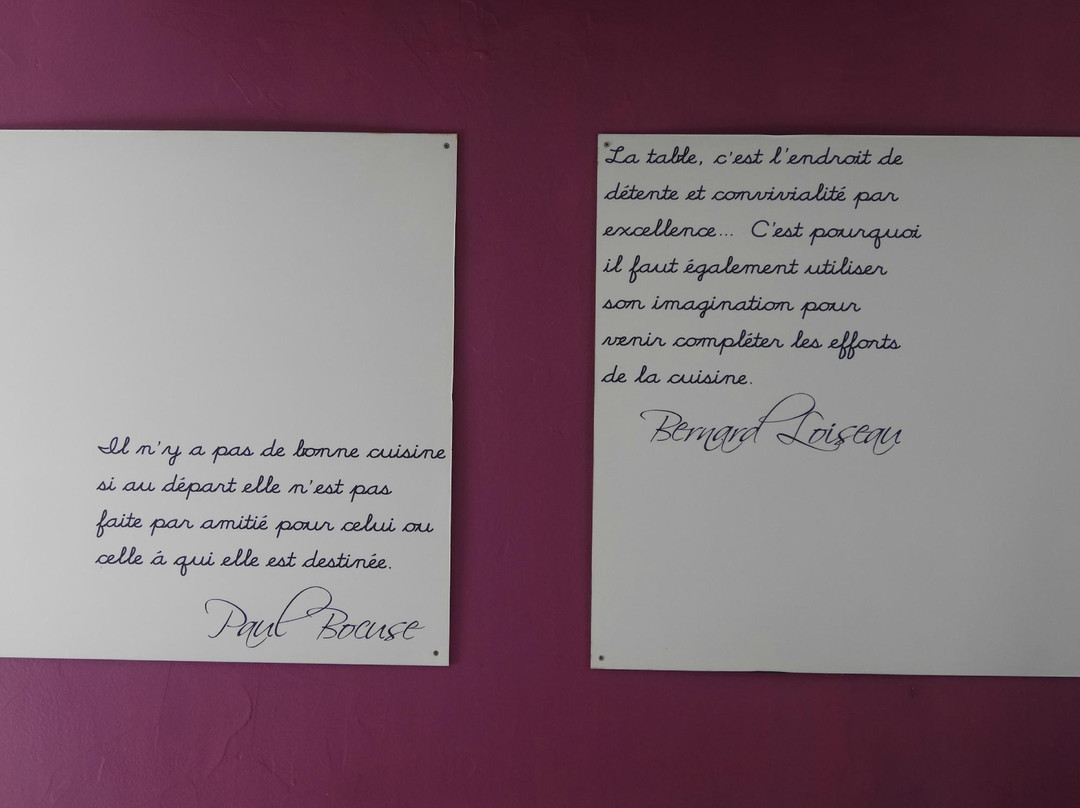 Il n'y a pas de bonne cuisine
si au départ elle n'est pas
faite par amitié pour celui ou
celle á qui elle est destinée.
Paul Bocuse
La table, c'est l'endroit de
détente et convivialité par
excellence... C'est pourquoi
il faut également utiliser
son imagination pour
venir compléter les efforts
de la cuisine.
Bernard Loiseau